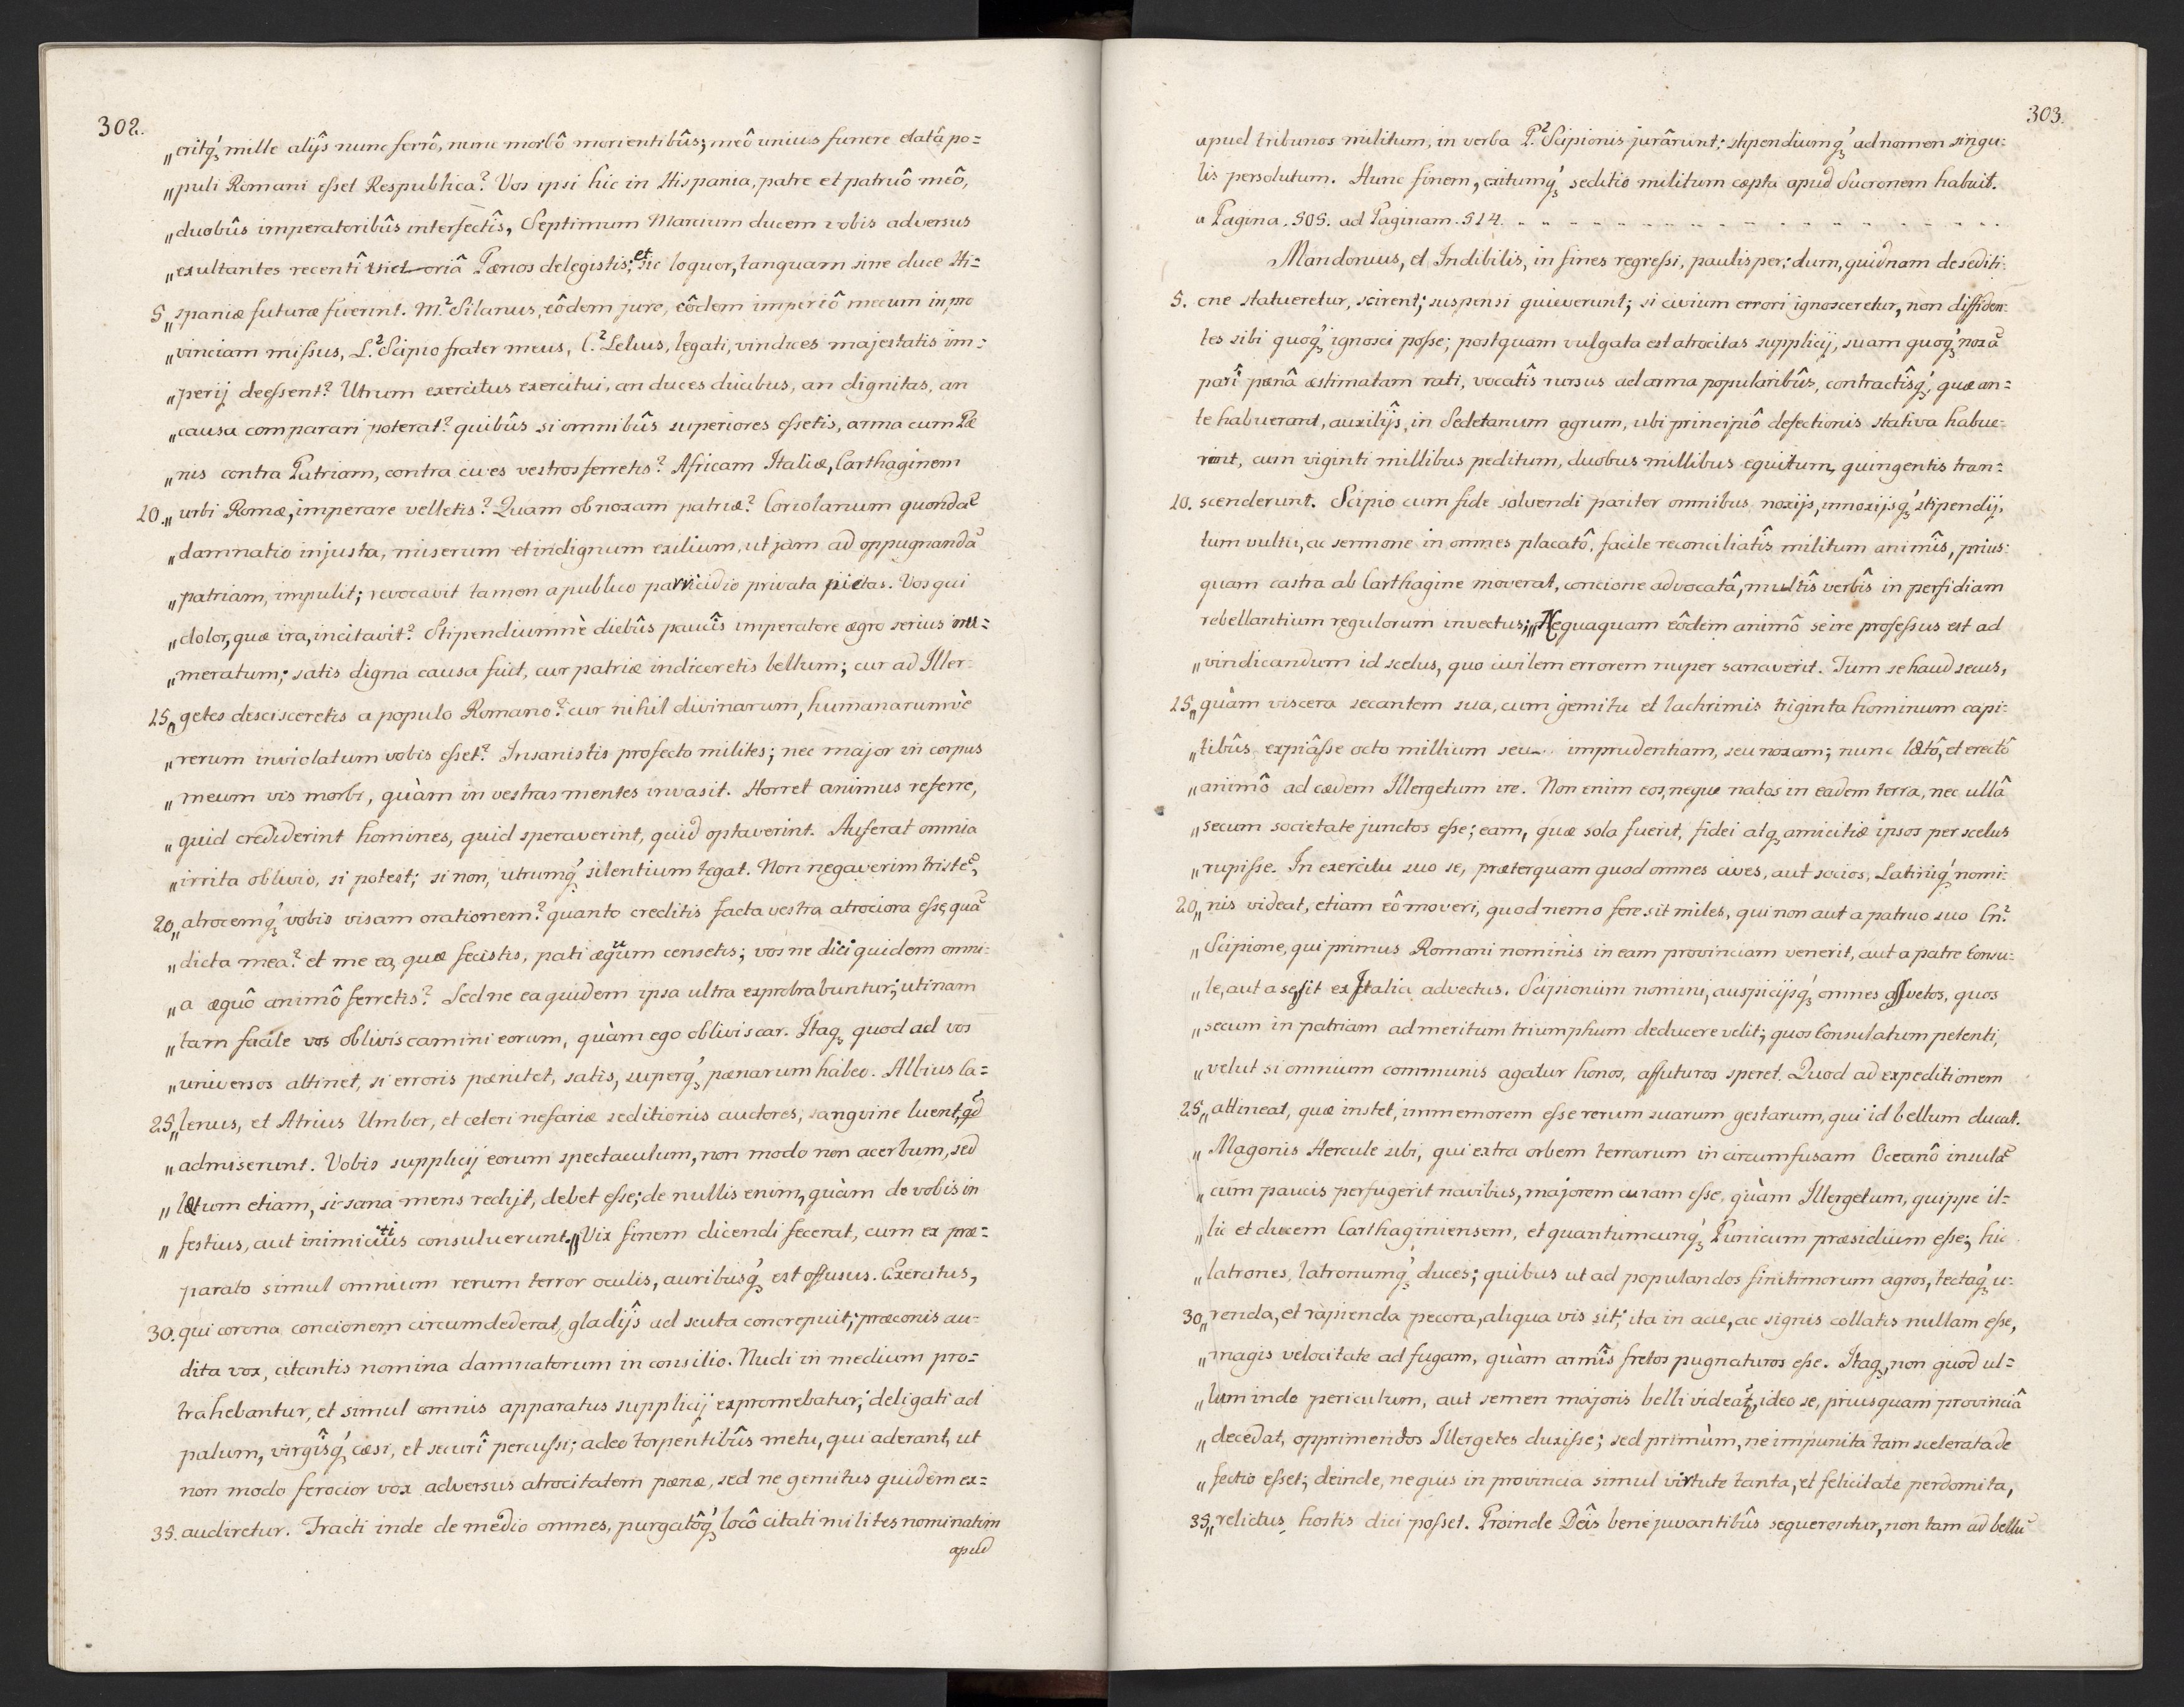 302.
„eritq́ȝ mille alijs nunc ferrô, nunc morbô morientibûs; meô unius funere elatâ po=
„puli Romani esset Respublica? Vos ipsi hic in Hispania, patre et patruô meô,
„duobûs imperatoribûs interfectîs, Septimum Marcium ducem vobis adversus
„exultantes recentî victoriâ Pœnos delegistis; et sic loquor, tanquam sine duce Hi=
5„spaniæ futuræ fuerint. M.² Silanus, eôdem jure, eôdem imperiô mecum in pro
„vinciam missus, L.² Scipio frater meus, C.² Lelius, legati, vindices majestatis im=
„perij deessent? Utrum exercitus exercitui, an duces ducibus, an dignitas, an
„causa comparari poterat? quibûs si omnibûs superiores essetis, arma cum Pæ
„nis contra Patriam, contra cives vestros ferretis? Africam Italiæ, Carthaginem
10.„urbi Romæ, imperare velletis? Quam ob noxam patriæ? Coriolanum quondã
„damnatio injusta, miserum et indignum exilium, ut jam ad oppugnandã
„patriam, impulit; revocavit tamen a publico parricidio privata pietas. Vos qui
„dolor, quæ ira, incitavit? Stipendiumnè diebûs paucîs imperatore ægro serius nu=
„meratum; satis digna causa fuit, cur patriæ indiceretis bellum; cur ad Iller=
15„getes descisceretis a populo Romano? cur nihil divinarum, humanarumvè
„rerum inviolatum vobis esset? Insanistis profecto milites; nec major in corpus
„meum vis morbi, quàm in vestras mentes invasit. Horret animus referre,
„quid crediderint homines, quid speraverint, quid optaverint. Auferat omnia
„irrita oblivio, si potest; si non, utrumq́ȝ silentium tegat. Non negaverim tristẽ,
20„atrocemq́ȝ vobis visam orationem? quanto creditis facta vestra atrociora esse, quã
„dicta mea? et me ea, quæ fecistis, pati æquum censetis; vos ne dici quidem omni=
„a æquô animô ferretis? Sed ne ea quidem ipsa ultra exprobrabuntur; utinam
„tam facile vos obliviscamini eorum, quàm ego obliviscar. Itaqȝ quod ad vos
„universos attinet, si erroris pænitet, satis, superq́ȝ pænarum habeo. Albius Ca=
25„lenus, et Atrius Umber, et cæteri nefariæ seditionis auctores, sangvine luent, qd̃
„admiserunt. Vobis supplicij eorum spectaculum, non modo non acerbum, sed
„lætum etiam, si sana mens redijt, debet esse; de nullis enim, quàm de vobis in
„festius, aut inimicitiùs consuluerunt.„ Vix finem dicendi fecerat, cum ex præ=
parato simul omnium rerum terror oculis, auribusq́ȝ est offusus. Exercitus,
30. qui corona concionem circumdederat, gladijs ad scuta concrepuit; præconis au=
dita vox, citantis nomina damnatorum in consilio. Nudi in medium pro=
trahebantur, et simul omnis apparatus supplicij expromebatur; deligati ad
palum, virgîsq́ȝ cæsi, et securî percussi; adeo torpentibûs metu, qui aderant, ut
non modo ferocior vox adversus atrocitatem pænæ, sed ne gemitus quidem ex=
35. audiretur. Tracti inde de medio omnes, purgatôq́ȝ locô citati milites nominatim
apud
303.
apud tribunos militum, in verba P.² Scipionis jurârunt; stipendiumq́ȝ ad nomen singu=
lis persolutum. Hunc finem, exitumq́ȝ seditio militum cæpta apud Sucronem habuit.
a Pagina. 505. ad Paginam. 514.
Mandonius, et Indibilis, in fines regressi, paulisper; dum, quidnam de sediti=
5. one statueretur, scirent; suspensi quieverunt; si civium errori ignosceretur, non diffiden=
tes sibi quoq́ȝ ignosci posse; postquam vulgata est atrocitas supplicij, suam quoq́ȝ noxã
parî pænâ æstimatam rati, vocatîs rursus ad arma popularibûs, contractîsq́ȝ, quæ an=
te habuerant, auxilijs, in Sedetanum agrum, ubi principiô defectionis stativa habue=
rant, cum viginti millibus peditum, duobus millibus equitum, quingentis tran=
10. scenderunt. Scipio cum fide solvendi pariter omnibus noxijs, innoxijsq́ȝ stipendij,
tum vultu, ac sermone in omnes placatô, facile reconciliatîs militum animîs, prius=
quam castra ab Carthagine moverat, concione advocatâ, multîs verbîs in perfidiam
rebellantium regulorum invectus; „Nequaquam eôdem animô se ire professus est ad
„vindicandum id scelus, quo civilem errorem nuper sanaverit. Tum se haud secus,
15„quàm viscera secantem sua, cum gemitu et lachrimis triginta hominum capi=
„tibûs expiâsse octo millium seu imprudentiam, seu noxam; nunc lætô, et erectô
„animô ad cædem Illergetum ire. Non enim eos, neque natos in eadem terra, nec ullâ
„secum societate junctos esse; eam, quæ sola fuerit, fidei atqȝ amicitiæ ipsos per scelus
„rupisse. In exercitu suo se, præterquam quod omnes cives, aut socios, Latiniq́ȝ nomi=
20„nis videat, etiam eô moveri, quod nemo fere sit miles, qui non aut a patruo suo Cn.²
„Scipione, qui primus Romani nominis in eam provinciam venerit, aut a patre Consu=
„le, aut a se, sit ex Italia advectus. Scipionum nomini, auspicijsq́ȝ omnes assvetos, quos
„secum in patriam ad meritum triumphum deducere velit; quos Consulatum petenti,
„velut si omnium communis agatur honos, affuturos speret. Quod ad expeditionem
25„attineat, quæ instet, immemorem esse rerum suarum gestarum, qui id bellum ducat.
„Magonis Hercule sibi, qui extra orbem terrarum in circumfusam Oceanô insulã
„cum paucis perfugerit navibus, majorem curam esse, quàm Illergetum, quippe il=
„lic et ducem Carthaginiensem, et quantumcunq́ȝ Punicum præsidium esse; hic
„latrones, latronumq́ȝ duces; quibus ut ad populandos finitimorum agros, tectaq́ȝ u=
30„renda, et rapienda pecora, aliqua vis sit; ita in acie, ac signis collatis nullam esse,
„magis velocitate ad fugam, quàm armîs fretos pugnaturos esse. Itaqȝ, non quod ul=
„lum inde periculum, aut semen majoris belli videat̃, ideo se, priusquam provinciâ
„decedat, opprimendos Illergetes duxisse; sed primùm, ne impunita tam scelerata de
„fectio esset; deinde, ne quis in provincia simul virtute tanta, et felicitate perdomita,
35„relictus hostis dici posset. Proinde Deîs bene juvantibûs sequerentur, non tam ad bellũ